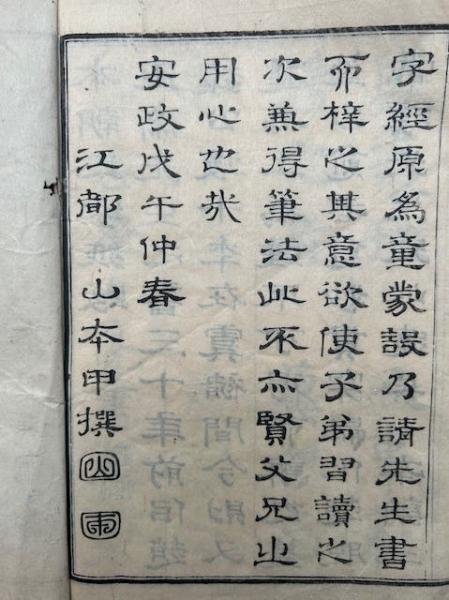 字經原爲童蒙設乃請先生書
而梓之其意欲使子弟習讀之
次兼得筆法此不亦賢父兄之
用心也哉
安政戊午仲春
江都 山本甲撰